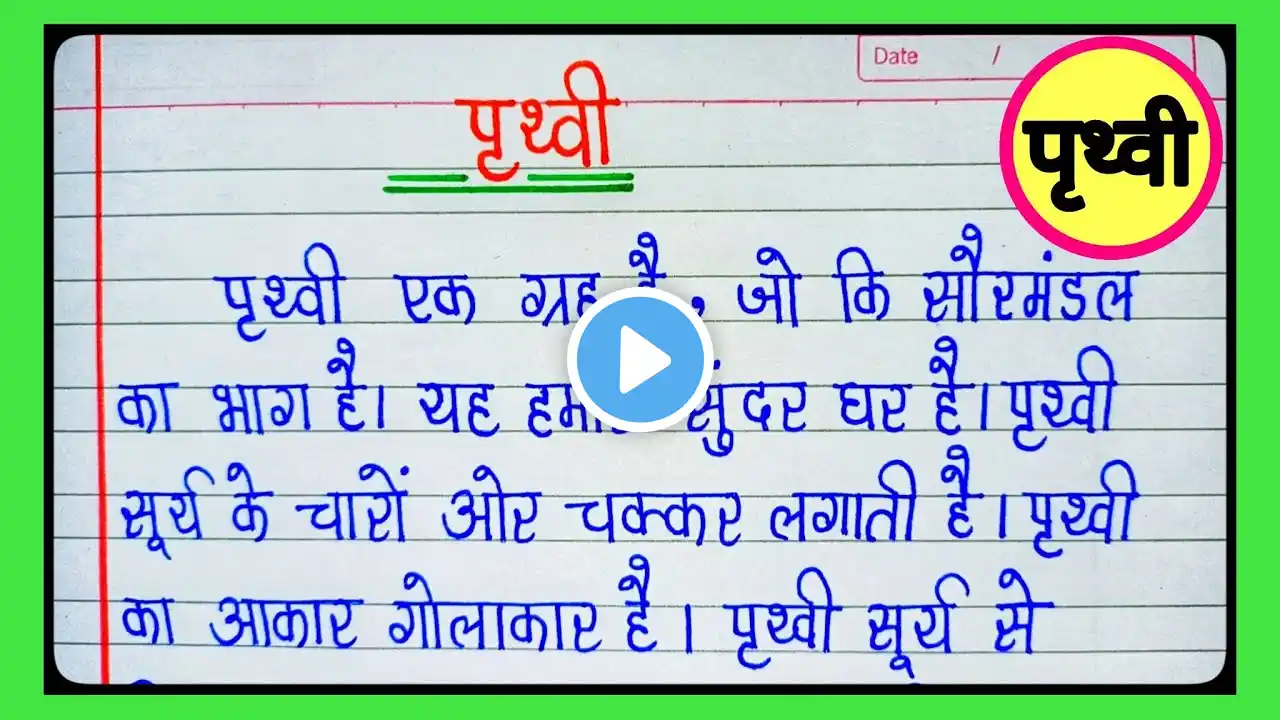 Date /
पृथ्वी
पृथ्वी
पृथ्वी एक ग्रह है, जो कि सौरमंडल
का भाग है। यह सुंदर घर है। पृथ्वी
सूर्य के चारों ओर चक्कर लगाती है। पृथ्वी
का आकार गोलाकार है। पृथ्वी सूर्य से